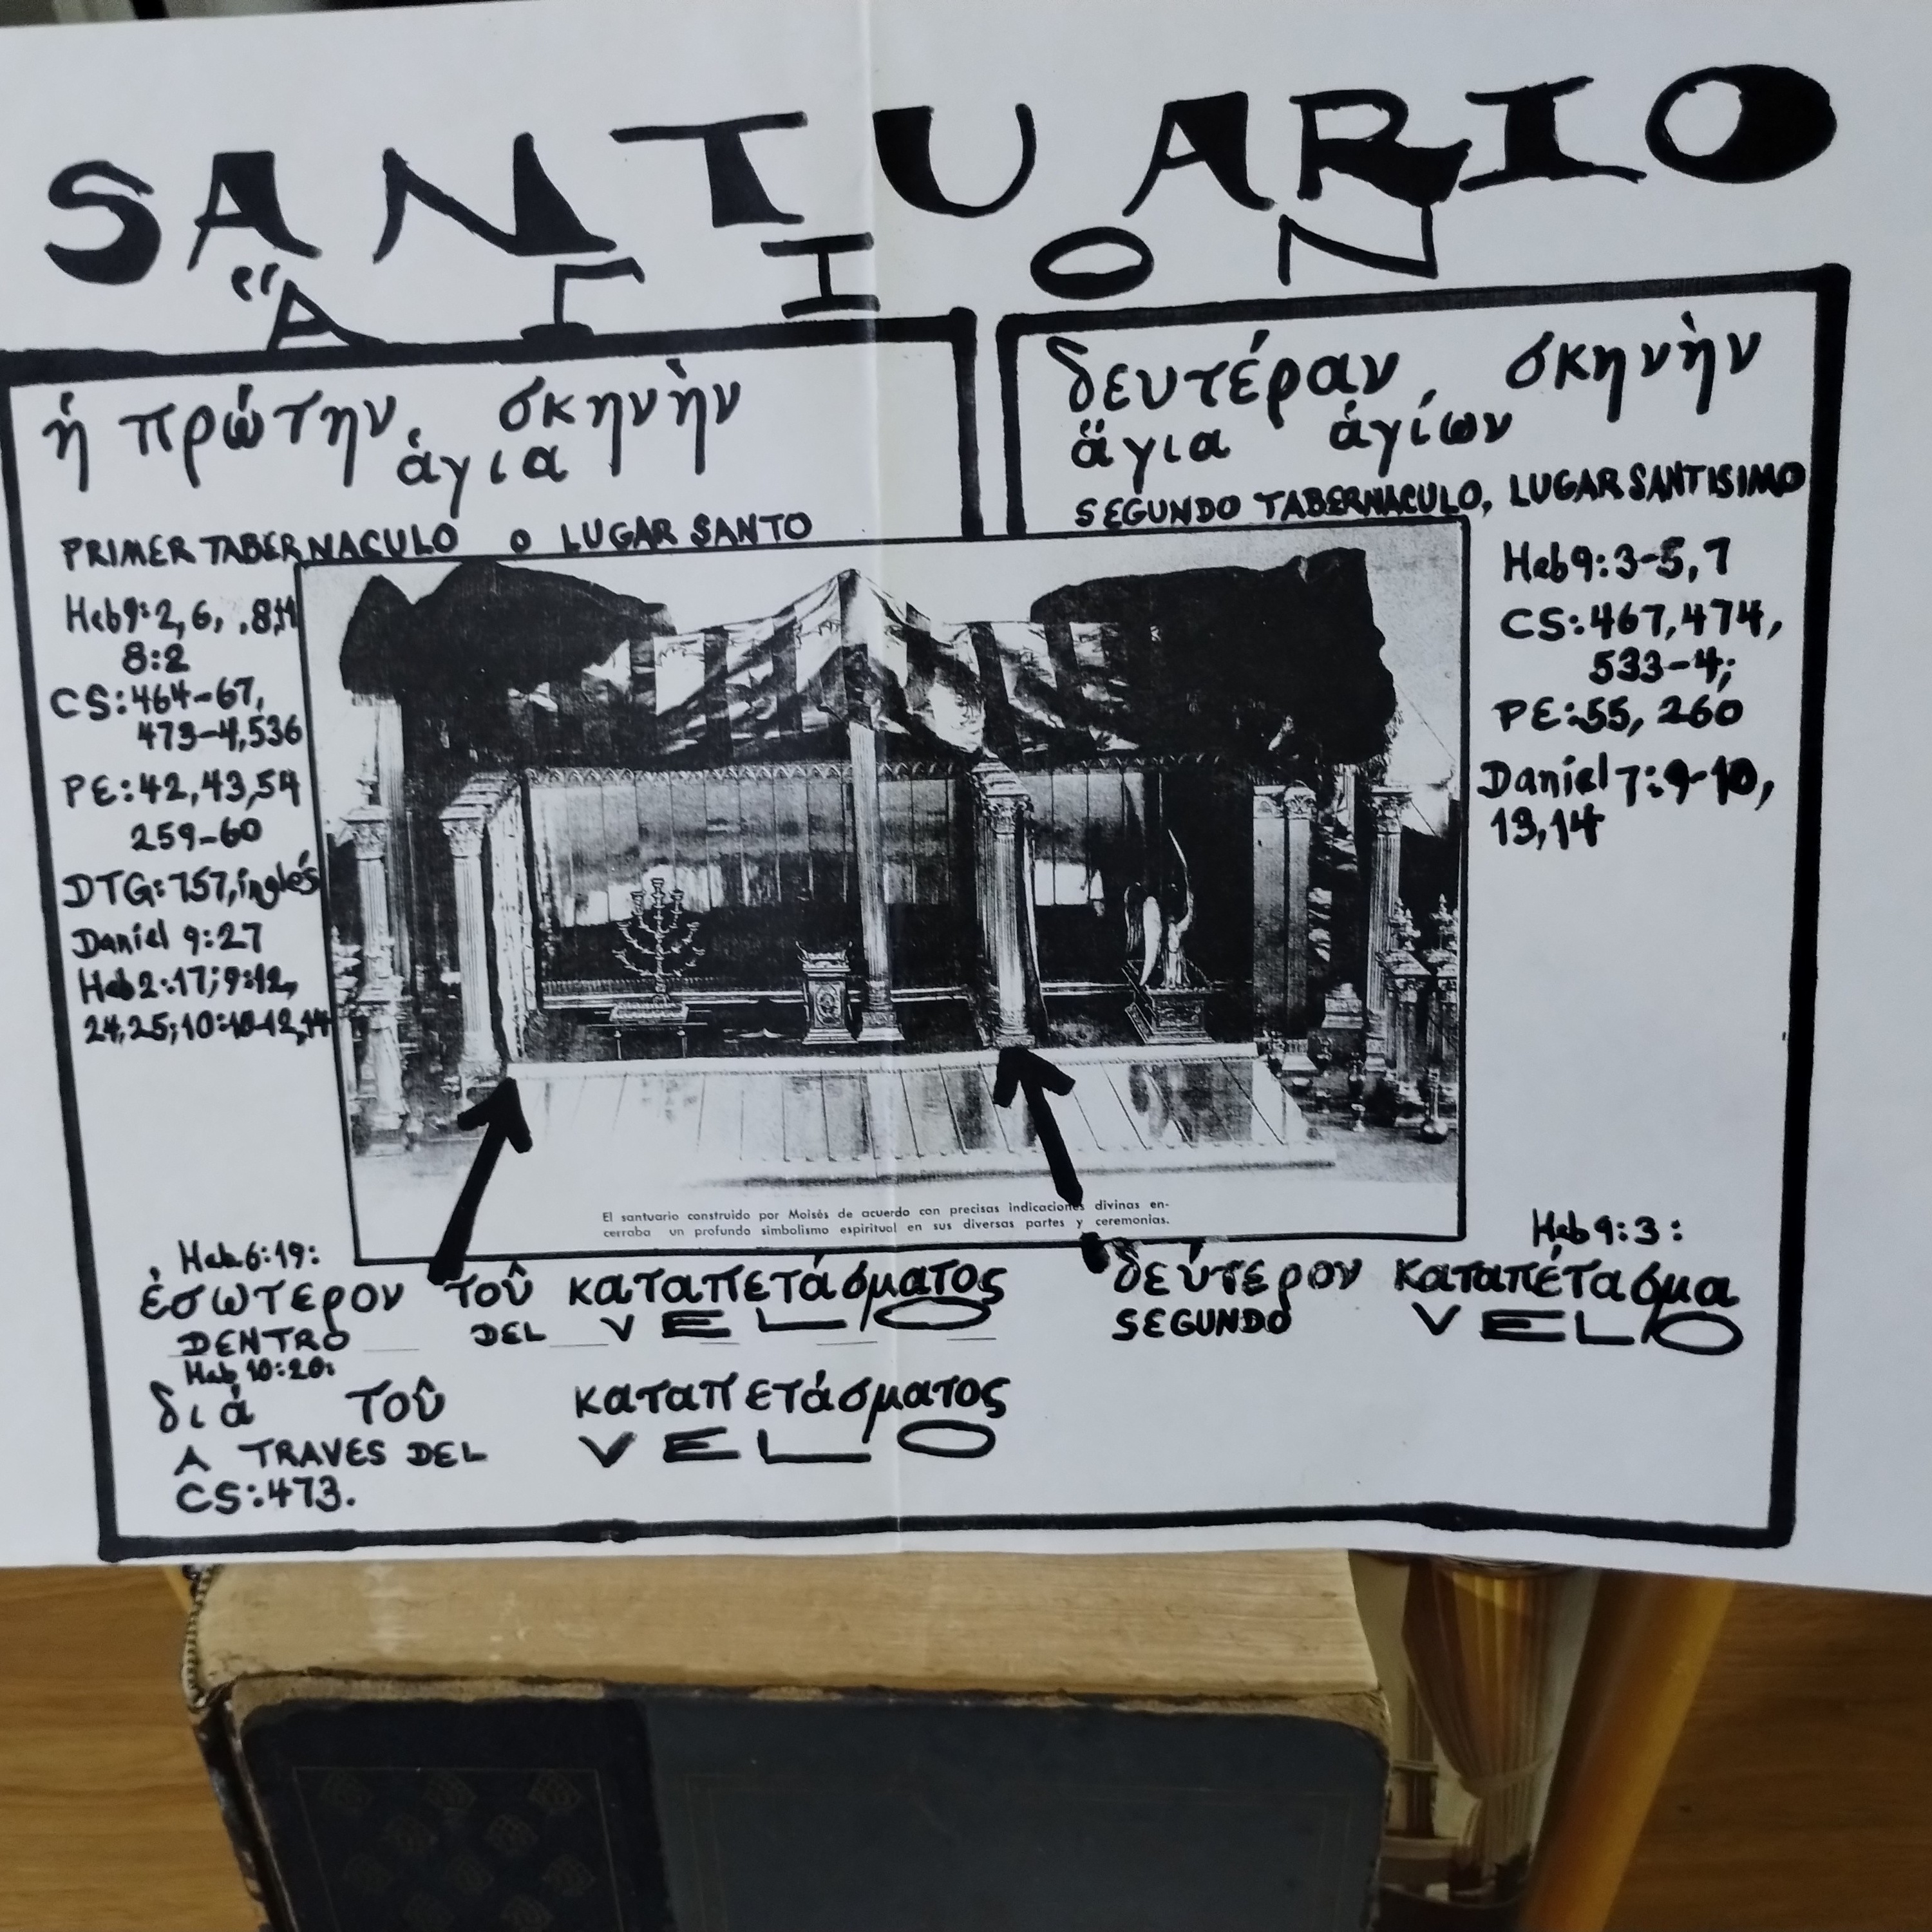 SANTUARIO
"ΑΓΙΟΝ
ἡ πρώτην σκηνὴν
ἁγια
PRIMER TABERNACULO O LUGAR SANTO
Heb 9:2, 6, ,8,11
8:2
CS:464-67,
473-4,536
PE:42,43,54
259-60
DTG:757,inglés
Daniel 9:27
Heb 2:17; 9:12,
24,25;10:10-12,14
δευτέραν σκηνὴν
ἅγια ἁγίων
SEGUNDO TABERNACULO, LUGAR SANTISIMO
Heb 9:3-5,7
CS:467,474,
533-4;
PE:55, 260
Daniel 7:9-10,
13,14
El santuario construido por Moisés de acuerdo con precisas indicaciones divinas en-
cerraba un profundo simbolismo espiritual en sus diversas partes y ceremonias.
Heb 6:19:
ἐσωτερον τοῦ καταπετάσματος
DENTRO DEL VELO
Heb 10:20:
διά τοῦ καταπετάσματος
A TRAVES DEL VELO
CS:473.
Heb 9:3:
δεύτερον καταπέτασμα
SEGUNDO VELO